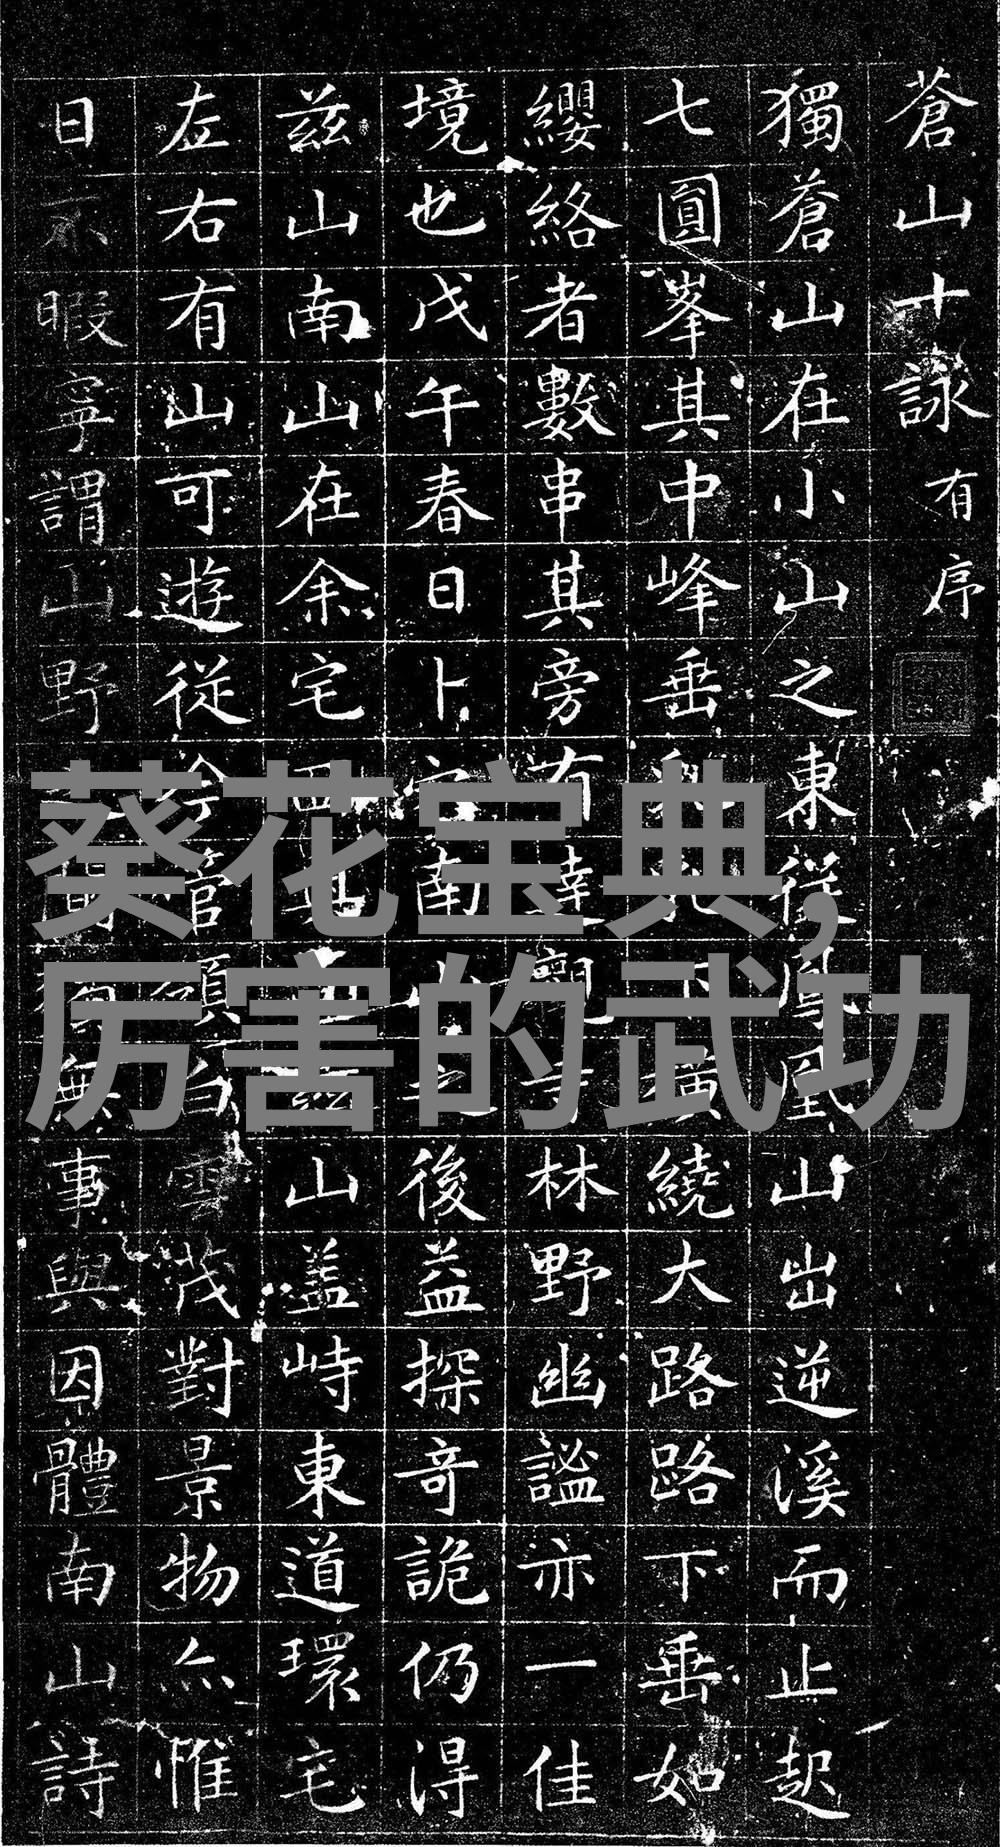 蒼山十詠 有序
獨蒼山在小山之東從鳳凰山出逆溪而止起
七圓峯其中峰垂下橫繞大路路下垂如
纓絡者數串其旁有達觀寺林野幽謐亦一佳
境也戊午春日卜宅南山之後益探奇詭仍得
茲山南山在余宅西山蓋峙東道環宅
左右有山可遊從管領白雲茂對景物亦惟
日不暇寧謂山野間無事與因體南山詩
葵花宝典,
厉害的武功